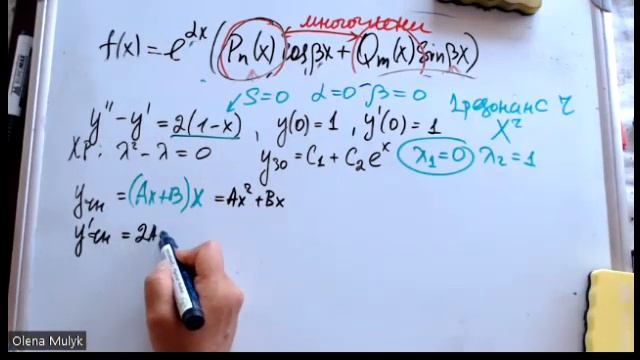 многочлени
f(x) = e^{αx} (P_n(x) cos βx + Q_m(x) sin βx)
S=0 α=0 β=0
y'' - y' = 2(1-x), y(0) = 1, y'(0) = 1
1 резонанс r
x^r
ХР: λ² - λ = 0
y_{зо} = C₁ + C₂e^x
λ₁=0 λ₂=1
y_{чн} = (Ax+B)x = Ax² + Bx
y'_{чн} = 2A
Olena Mulyk